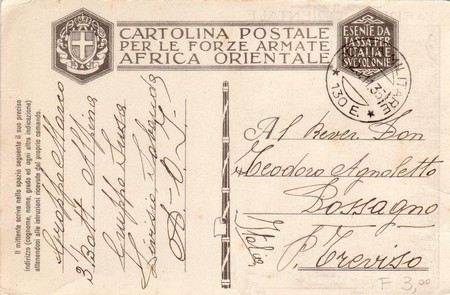 CARTOLINA POSTALE
PER LE FORZE ARMATE
AFRICA ORIENTALE
ESENTE DA
TASSA PER
L'ITALIA E
SUE COLONIE
MILITARE
* 130 E. *
Il mittente scriva nello spazio seguente il suo preciso
indirizzo (cognome, nome, grado ed ogni altra indicazione)
attenendosi alle istruzioni ricevute dal proprio comando.
Marco
3. Batt. Alpina
Gruppo Susa
Divisione
A. O. I.
Al Rever. Don
Teodoro Agnoletto
Possagno
P. Treviso
Italia
F 3,00